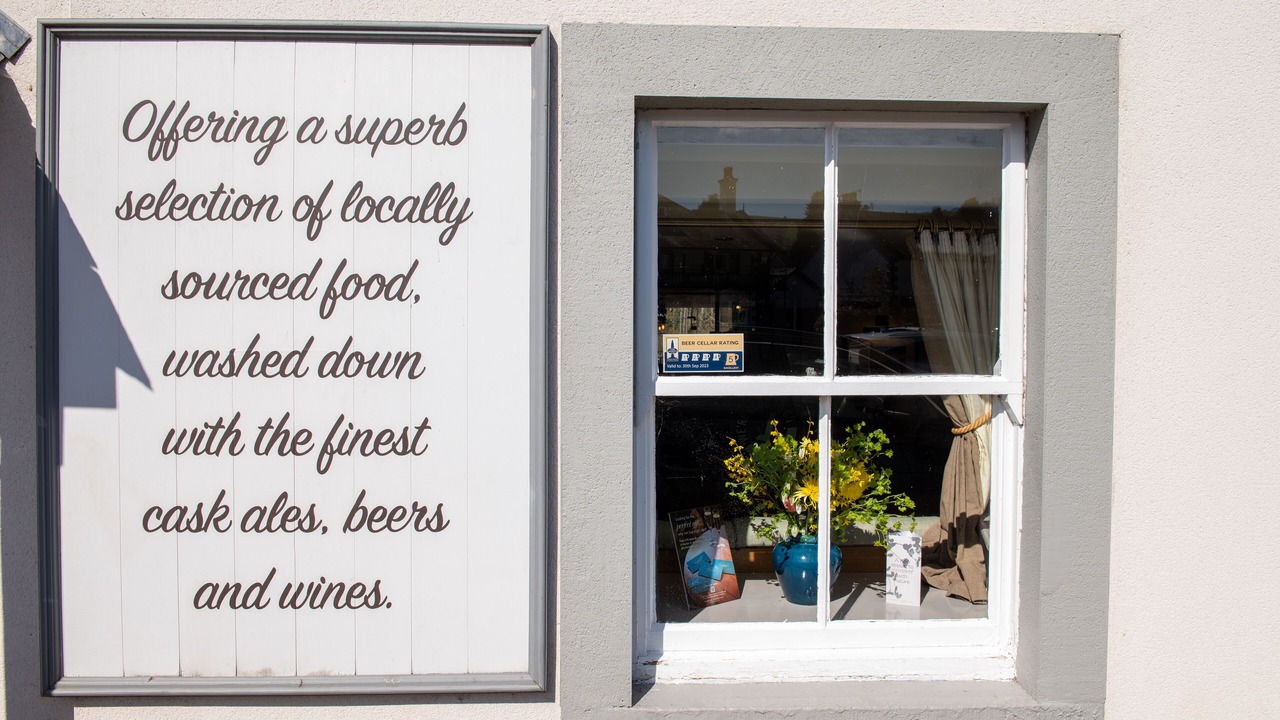 Offering a superb
selection of locally
sourced food,
washed down
with the finest
cask ales, beers
and wines.
BEER CELLAR RATING
5
EXCELLENT
Valid to: 30th Sep 2023